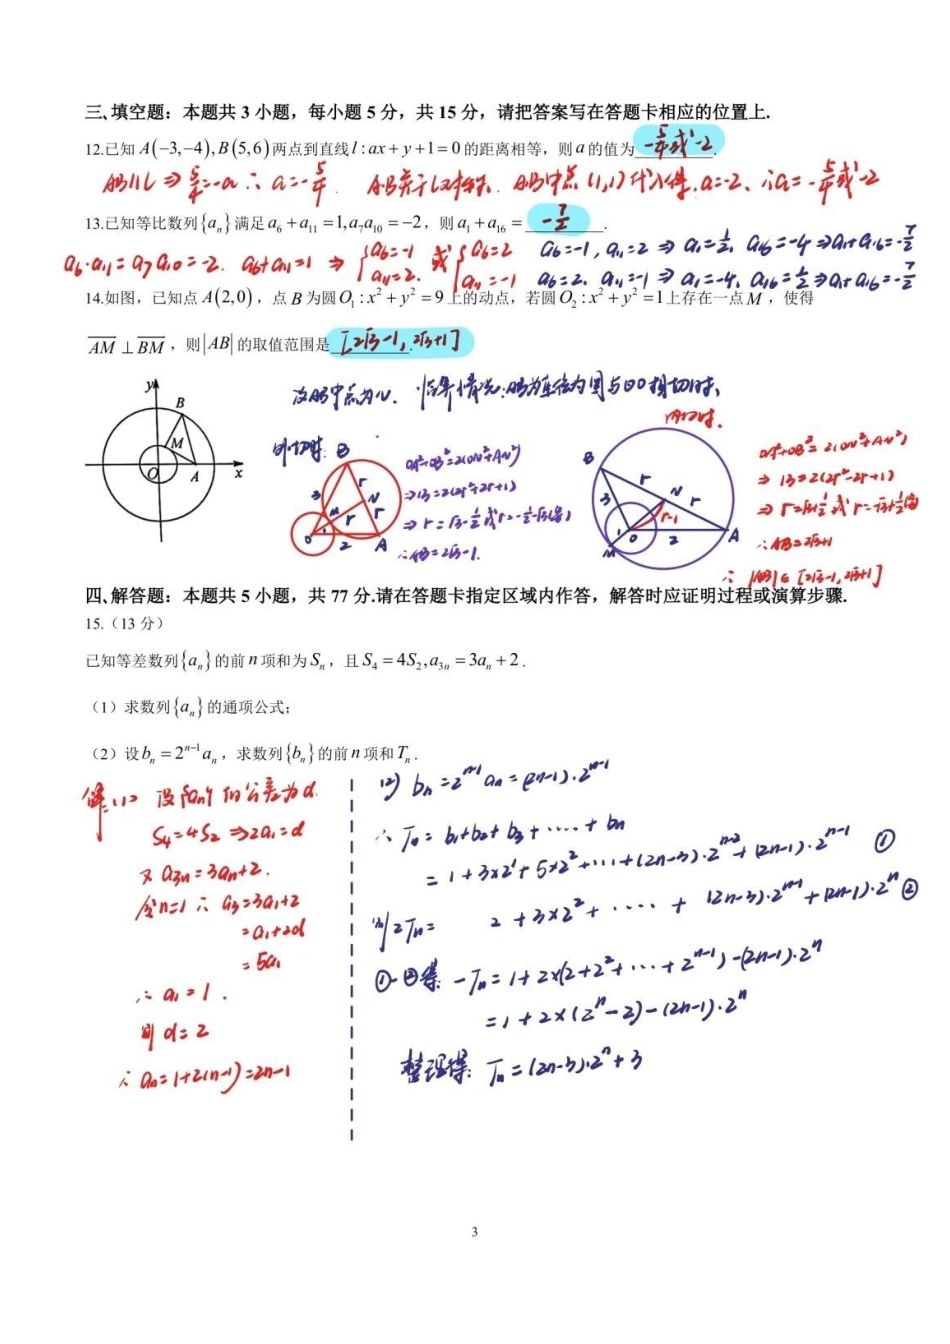 三、填空题：本题共 3 小题，每小题 5 分，共 15 分，请把答案写在答题卡相应的位置上.
12.已知 A(−3,−4), B(5,6) 两点到直线 l : ax + y +1 = 0 的距离相等，则 a 的值为 −5/4或−2.
AB∥l ⇒ 5/4=−a ∴ a=−5/4. AB关于l对称. AB中点(1,1)代入得, a=−2. ∴a=−5/4或−2
13.已知等比数列{aₙ}满足 a₆ + a₁₁ = 1, a₇a₁₀ = −2，则 a₁ + a₁₆ = −7/2.
a₆·a₁₁=a₇a₁₀=−2. a₆+a₁₁=1 ⇒ {a₆=−1 a₁₁=2. 或 {a₆=2 a₁₁=−1
a₆=−1, a₁₁=2 ⇒ a₁=1/2, a₁₆=−4 ⇒a₁+a₁₆=−7/2
a₆=2, a₁₁=−1 ⇒ a₁=−4, a₁₆=1/2 ⇒a₁+a₁₆=−7/2
14.如图，已知点 A(2,0)，点 B 为圆 O₁ : x² + y² = 9 上的动点，若圆 O₂ : x² + y² = 1 上存在一点 M，使得
AM ⊥ BM，则|AB|的取值范围是 [2√3−1, 2√3+1].
设AB中点为N. 临界情况:AB为直径的圆与⊙O相切时,
y
B
M
O
A
x
外切时.
B
3
r
N
M
r
r
1
O
2
A
OA²+OB²=2(ON²+AN²)
⇒13=2(2r²+2r+1)
⇒r=√3−1/2或r=−1/2−√3(舍)
∴AB=2√3−1.
内切时.
B
r
N
3
r
r−1
1
O
2
A
M
OA²+OB²=2(ON²+AN²)
⇒13=2(2r²−2r+1)
⇒r=√3+1/2或r=−√3+1/2(舍)
∴AB=2√3+1
∴|AB|∈[2√3−1, 2√3+1]
四、解答题：本题共 5 小题，共 77 分.请在答题卡指定区域内作答，解答时应证明过程或演算步骤.
15.（13 分）
已知等差数列{aₙ}的前 n 项和为 Sₙ，且 S₄ = 4S₂, a₃ₙ = 3aₙ + 2.
（1）求数列{aₙ}的通项公式;
（2）设 bₙ = 2ⁿ⁻¹aₙ，求数列{bₙ}的前 n 项和 Tₙ.
解:(1) 设{aₙ}的公差为d.
S₄=4S₂ ⇒2a₁=d
又 a₃ₙ=3aₙ+2.
令n=1 ∴ a₃=3a₁+2
=a₁+2d
=5a₁
∴ a₁=1.
则 d=2
∴ aₙ=1+2(n−1)=2n−1
(2) bₙ=2ⁿ⁻¹aₙ=(2n−1)·2ⁿ⁻¹
∴ Tₙ=b₁+b₂+b₃+····+bₙ
=1+3×2¹+5×2²+···+(2n−3)·2ⁿ⁻²+(2n−1)·2ⁿ⁻¹ ①
则2Tₙ= 2+3×2²+····+(2n−3)·2ⁿ⁻¹+(2n−1)·2ⁿ ②
①−②得 −Tₙ=1+2×(2+2²+···+2ⁿ⁻¹)−(2n−1)·2ⁿ
=1+2×(2ⁿ−2)−(2n−1)·2ⁿ
整理得: Tₙ=(2n−3)·2ⁿ+3
3